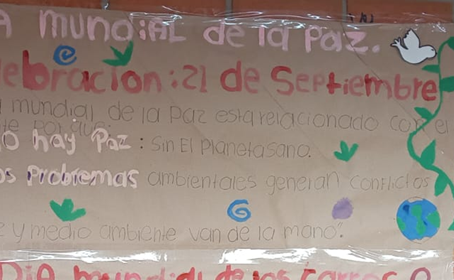 A MUNDIAL de la Paz.
elebracion: 21 de Septiembre
mundial de la Paz esta relacionado con el
te porque:
o hay Paz: Sin El Planeta Sano.
os Problemas ambientales generan conflictos
e y medio ambiente van de la mano".
Dia mundial de los